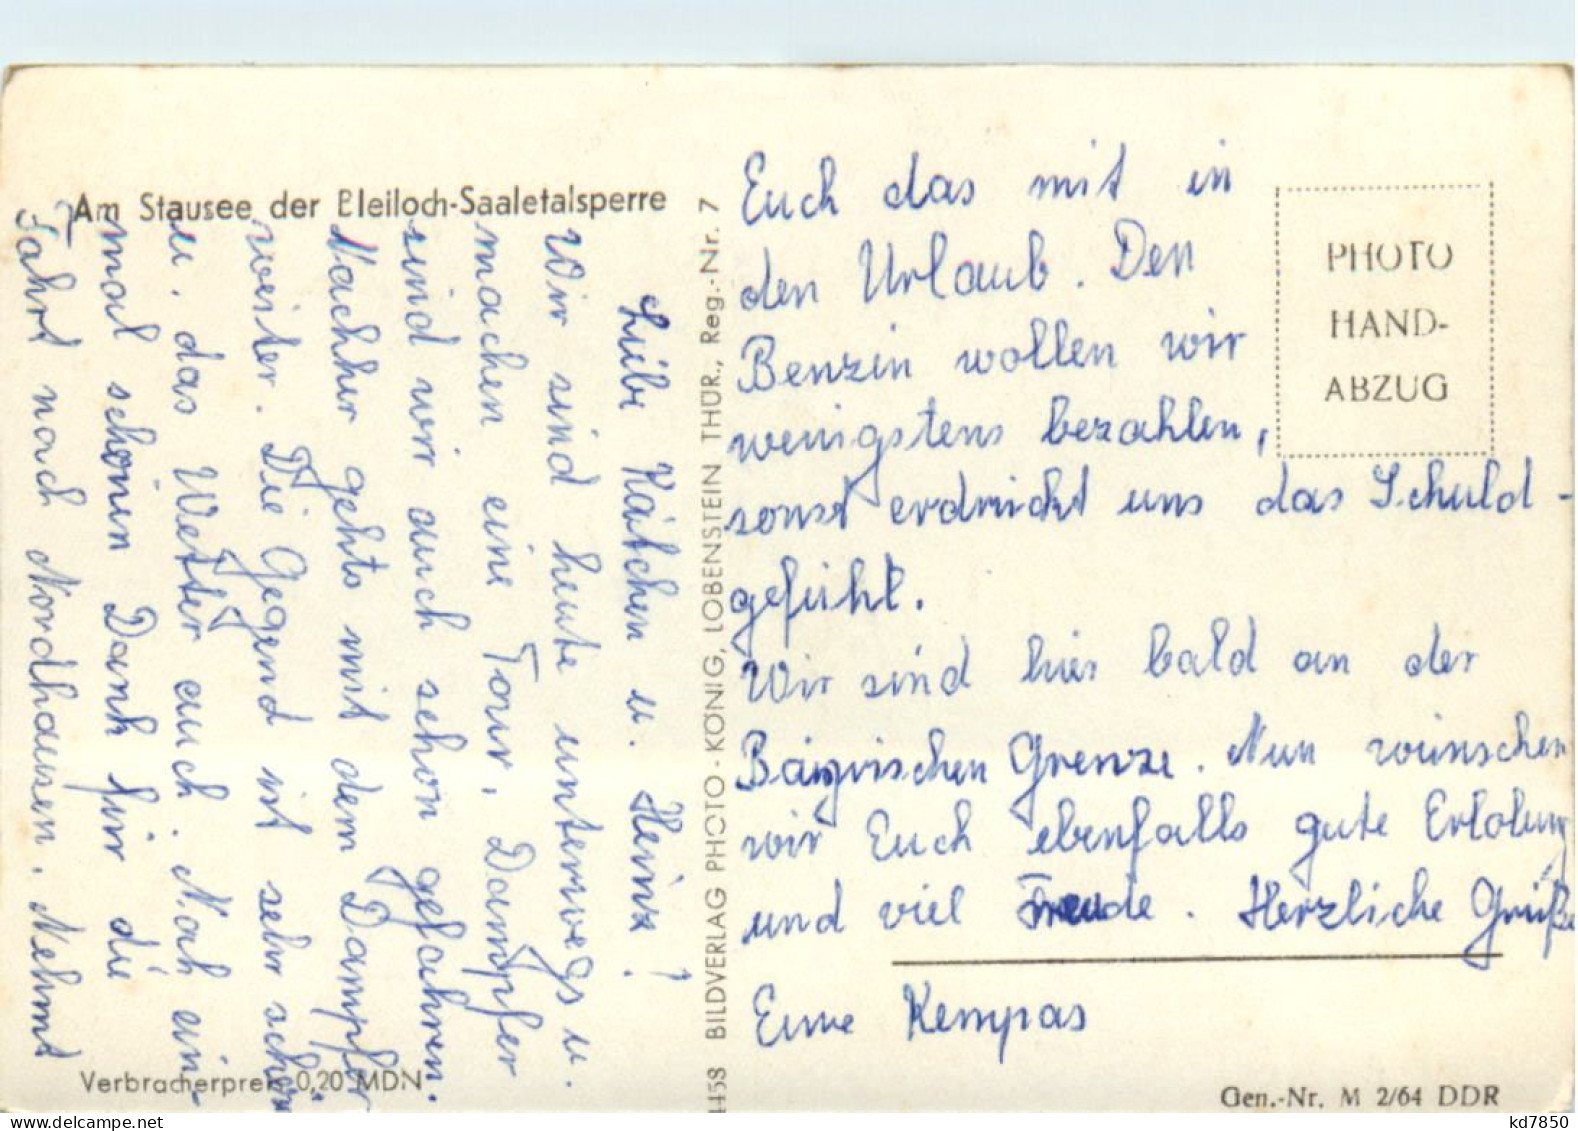 Am Stausee der Bleiloch-Saaletalsperre
Liebe Kätchen u. Heinz!
Wir sind heute unterwegs u.
machen eine Tour, Dampfer
sind wir auch schon gefahren.
Nachher gehts mit dem Dampfer
weiter. Die Gegend ist sehr schön
u. das Wetter auch. Noch ein
mal schönen Dank für die
Fahrt nach Nordhausen. Nehmt
Euch das mit in
den Urlaub. Den
Benzin wollen wir
wenigstens bezahlen,
sonst erdrückt uns das Schuld-
gefühl.
Wir sind hier bald an der
Bayrischen Grenze. Nun wünschen
wir Euch ebenfalls gute Erholung
und viel Freude. Herzliche Grüße
Eure Kempas
BILDVERLAG PHOTO-KÖNIG, LOBENSTEIN THÜR., Reg.-Nr. 7
4458
PHOTO
HAND-
ABZUG
Verbracherpreis 0,20 MDN
Gen.-Nr. M 2/64 DDR
www.delcampe.net
kd7850